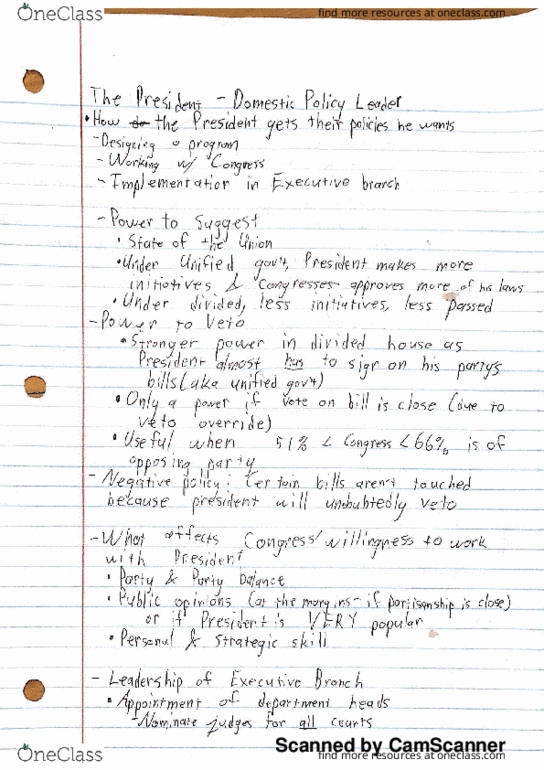 OneClass
find more resources at oneclass.com
The President - Domestic Policy Leader
• How do the President gets their policies he wants
- Designing a program
- Working w/ Congress
- Implementation in Executive branch
- Power to Suggest
• State of the Union
• Under Unified gov't, President makes more
initiatives & Congresses approves more of his laws
• Under divided, less initiatives, less passed
- Power to Veto
• Stronger power in divided house as
President almost has to sign on his party's
bills (aka unified gov't)
• Only a power if vote on bill is close (due to
veto override)
• Useful when 51% < Congress < 66% is of
opposing party
- Negative policy: Certain bills aren't touched
because president will undoubtedly veto
- What affects Congress' willingness to work
with President
• Party & Party balance
• Public opinions (at the margins - if partisanship is close)
or if President is VERY popular
• Personal & Strategic skill
- Leadership of Executive Branch
• Appointment of department heads
- Nominate judges for all courts
Scanned by CamScanner
OneClass
find more resources at oneclass.com